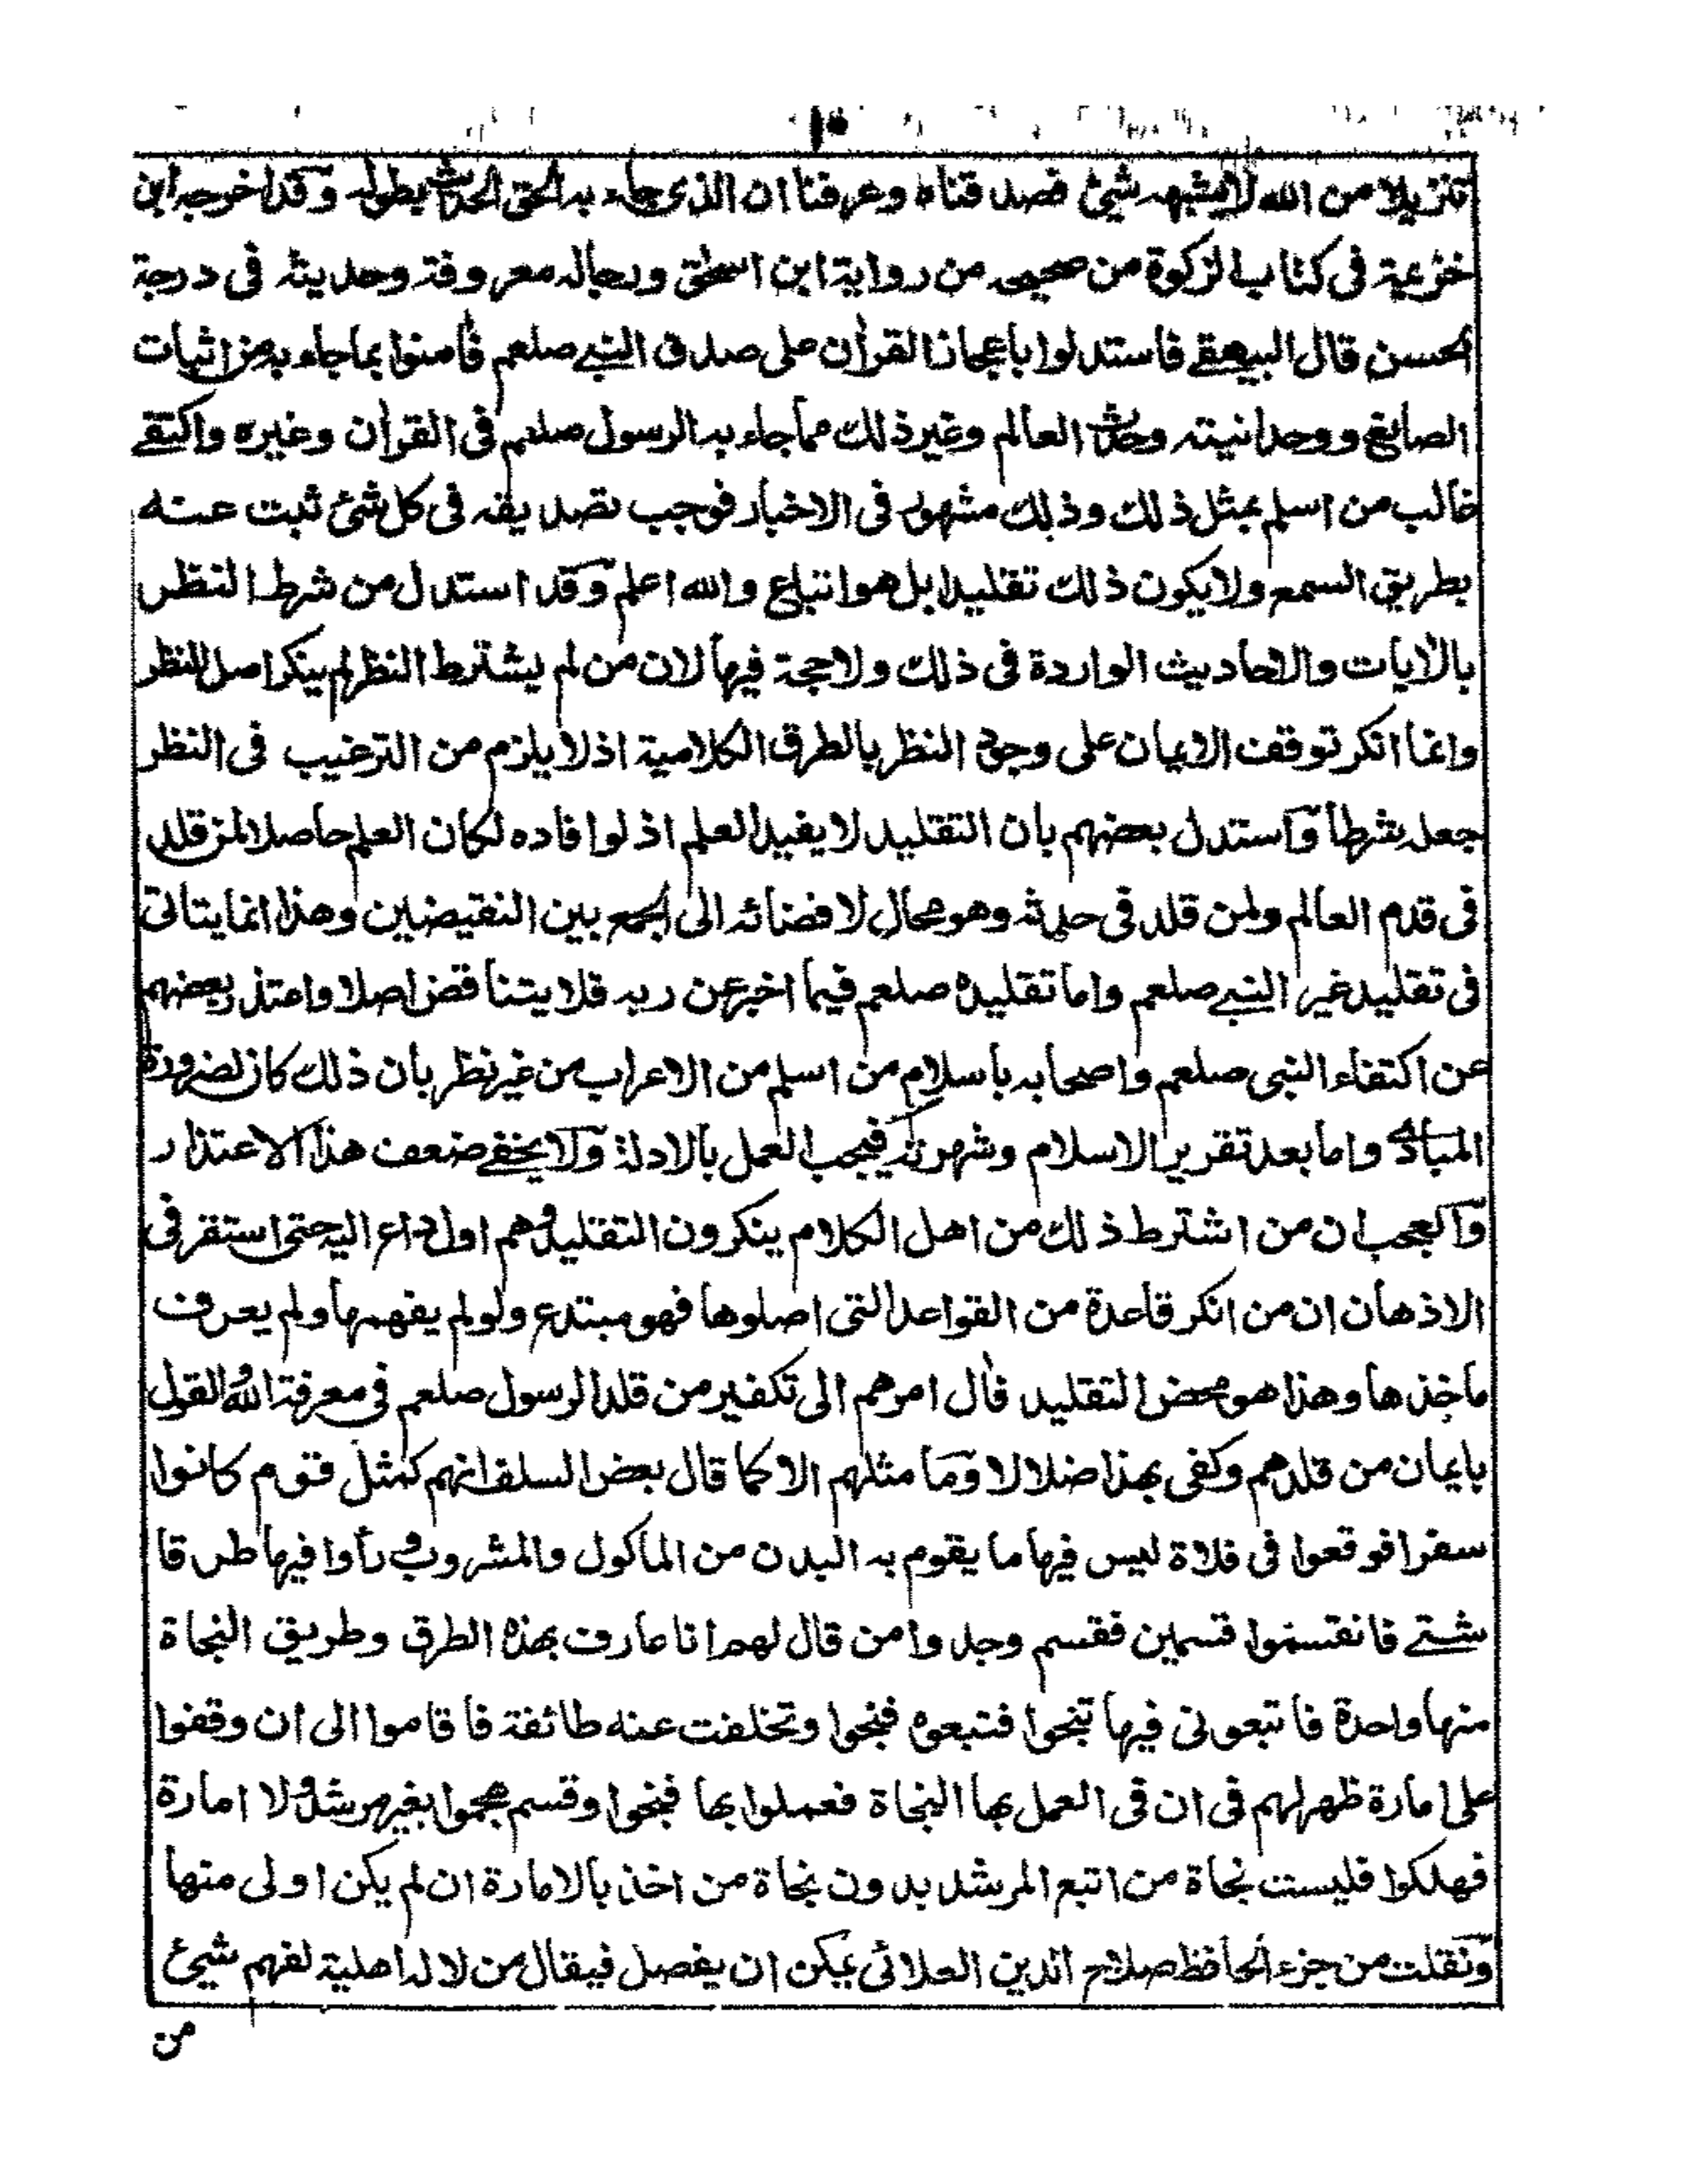 ١٠
تنزيلا من الله لا يشبهه شيئ فصدقناه وعرفنا ان الذى جاء به الحق الحديث بطوله وقد اخرجه ابن
خزيمة فى كتاب الزكوة من صحيحه من رواية ابن اسحق ورجاله معروفة وحديثه فى درجة
الحسن قال البيهقے فاستدلوا باعجاز القرأن على صدق النبے صلعم فأمنوا بما جاء به من اثبات
الصانع ووحدانيته وحدث العالم وغير ذلك مما جاء به الرسول صلعم فى القرأن وغيره واكتفے
غالب من اسلم بمثل ذلك وذلك مشهور فى الاخبار فوجب تصديقه فى كل شئ ثبت عنه
بطريق السمع ولا يكون ذلك تقليدا بل هو اتباع والله اعلم وقد استدل من شرط النظر
بالأيات والاحاديث الواردة فى ذلك ولا حجة فيها لان من لم يشترط النظر لم ينكر اصل النظر
وانما انكر توقف الايمان على وجود النظر بالطرق الكلامية اذ لا يلزم من الترغيب فى النظر
جعله شرطا واستدل بعضهم بان التقليد لا يفيد العلم اذ لو افاده لكان العلم حاصلا لمن قلد
فى قدم العالم ولمن قلد فى حدثه وهو محال لافضائه الى الجمع بين النقيضين وهذا انما يتاتى
فى تقليد غير النبے صلعم واما تقليده صلعم فيما اخبر عن ربه فلا يتناقض اصلا واعتذر بعضهم
عن اكتفاء النبى صلعم واصحابه باسلام من اسلم من الاعراب من غير نظر بان ذلك كان لضرورة
المبادى واما بعد تقرير الاسلام وشهرته فيجب العمل بالادلة ولا يخفے ضعف هذا الاعتذار
والعجب ان من اشترط ذلك من اهل الكلام ينكرون التقليد وهم اول داع اليه حتى استقر فى
الاذهان ان من انكر قاعدة من القواعد التى اصلوها فهو مبتدع ولو لم يفهمها ولم يعرف
ماخذها وهذا هو محض التقليد فأل امرهم الى تكفير من قلد الرسول صلعم فى معرفة الله والقول
بايمان من قلدهم وكفى بهذا ضلالا وما مثلهم الا كما قال بعض السلف انهم كمثل قوم كانوا
سفرا فوقعوا فى فلاة ليس فيها ما يقوم به البدن من الماكول والمشروب ورأوا فيها طرقا
شتے فانقسموا قسمين فقسم وجدوا من قال لهم انا عارف بهذه الطرق وطريق النجاة
منها واحدة فاتبعونى فيها تنجوا فتبعوه فنجوا وتخلفت عنه طائفة فاقاموا الى ان وقفوا
على امارة ظهر لهم فى ان فى العمل بها النجاة فعملوا بها فنجوا وقسم هجموا بغير مرشد ولا امارة
فهلكوا فليست نجاة من اتبع المرشد بدون نجاة من اخذ بالامارة ان لم يكن اولى منها
ونقلت من جزء الحافظ صلاح الدين العلائى يمكن ان يفصل فيقال من لا له اهلية لفهم شيئ
من